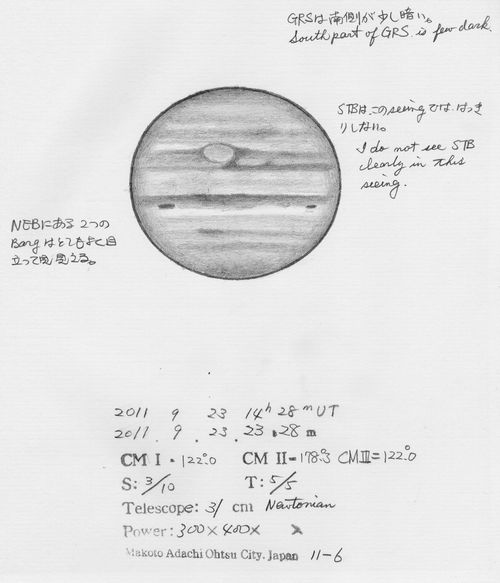 GRSは南側が少し暗い。
South part of GRS is few dark.
STBはこのseeingでは はっき
りしない。
I do not see STB
clearly in this
seeing.
NEBにある 2つの
Bargはとてもよく目
立って見える。
2011 9 23 14h 28m UT
2011 . 9 . 23 . 23 . 28 m
CM I - 122.0° CM II = 178.3° CM III = 122.0°
S: 3/10 T: 5/5
Telescope: 31 cm Newtonian
Power: 300× 400×
Makoto Adachi Ohtsu City, Japan 11-6